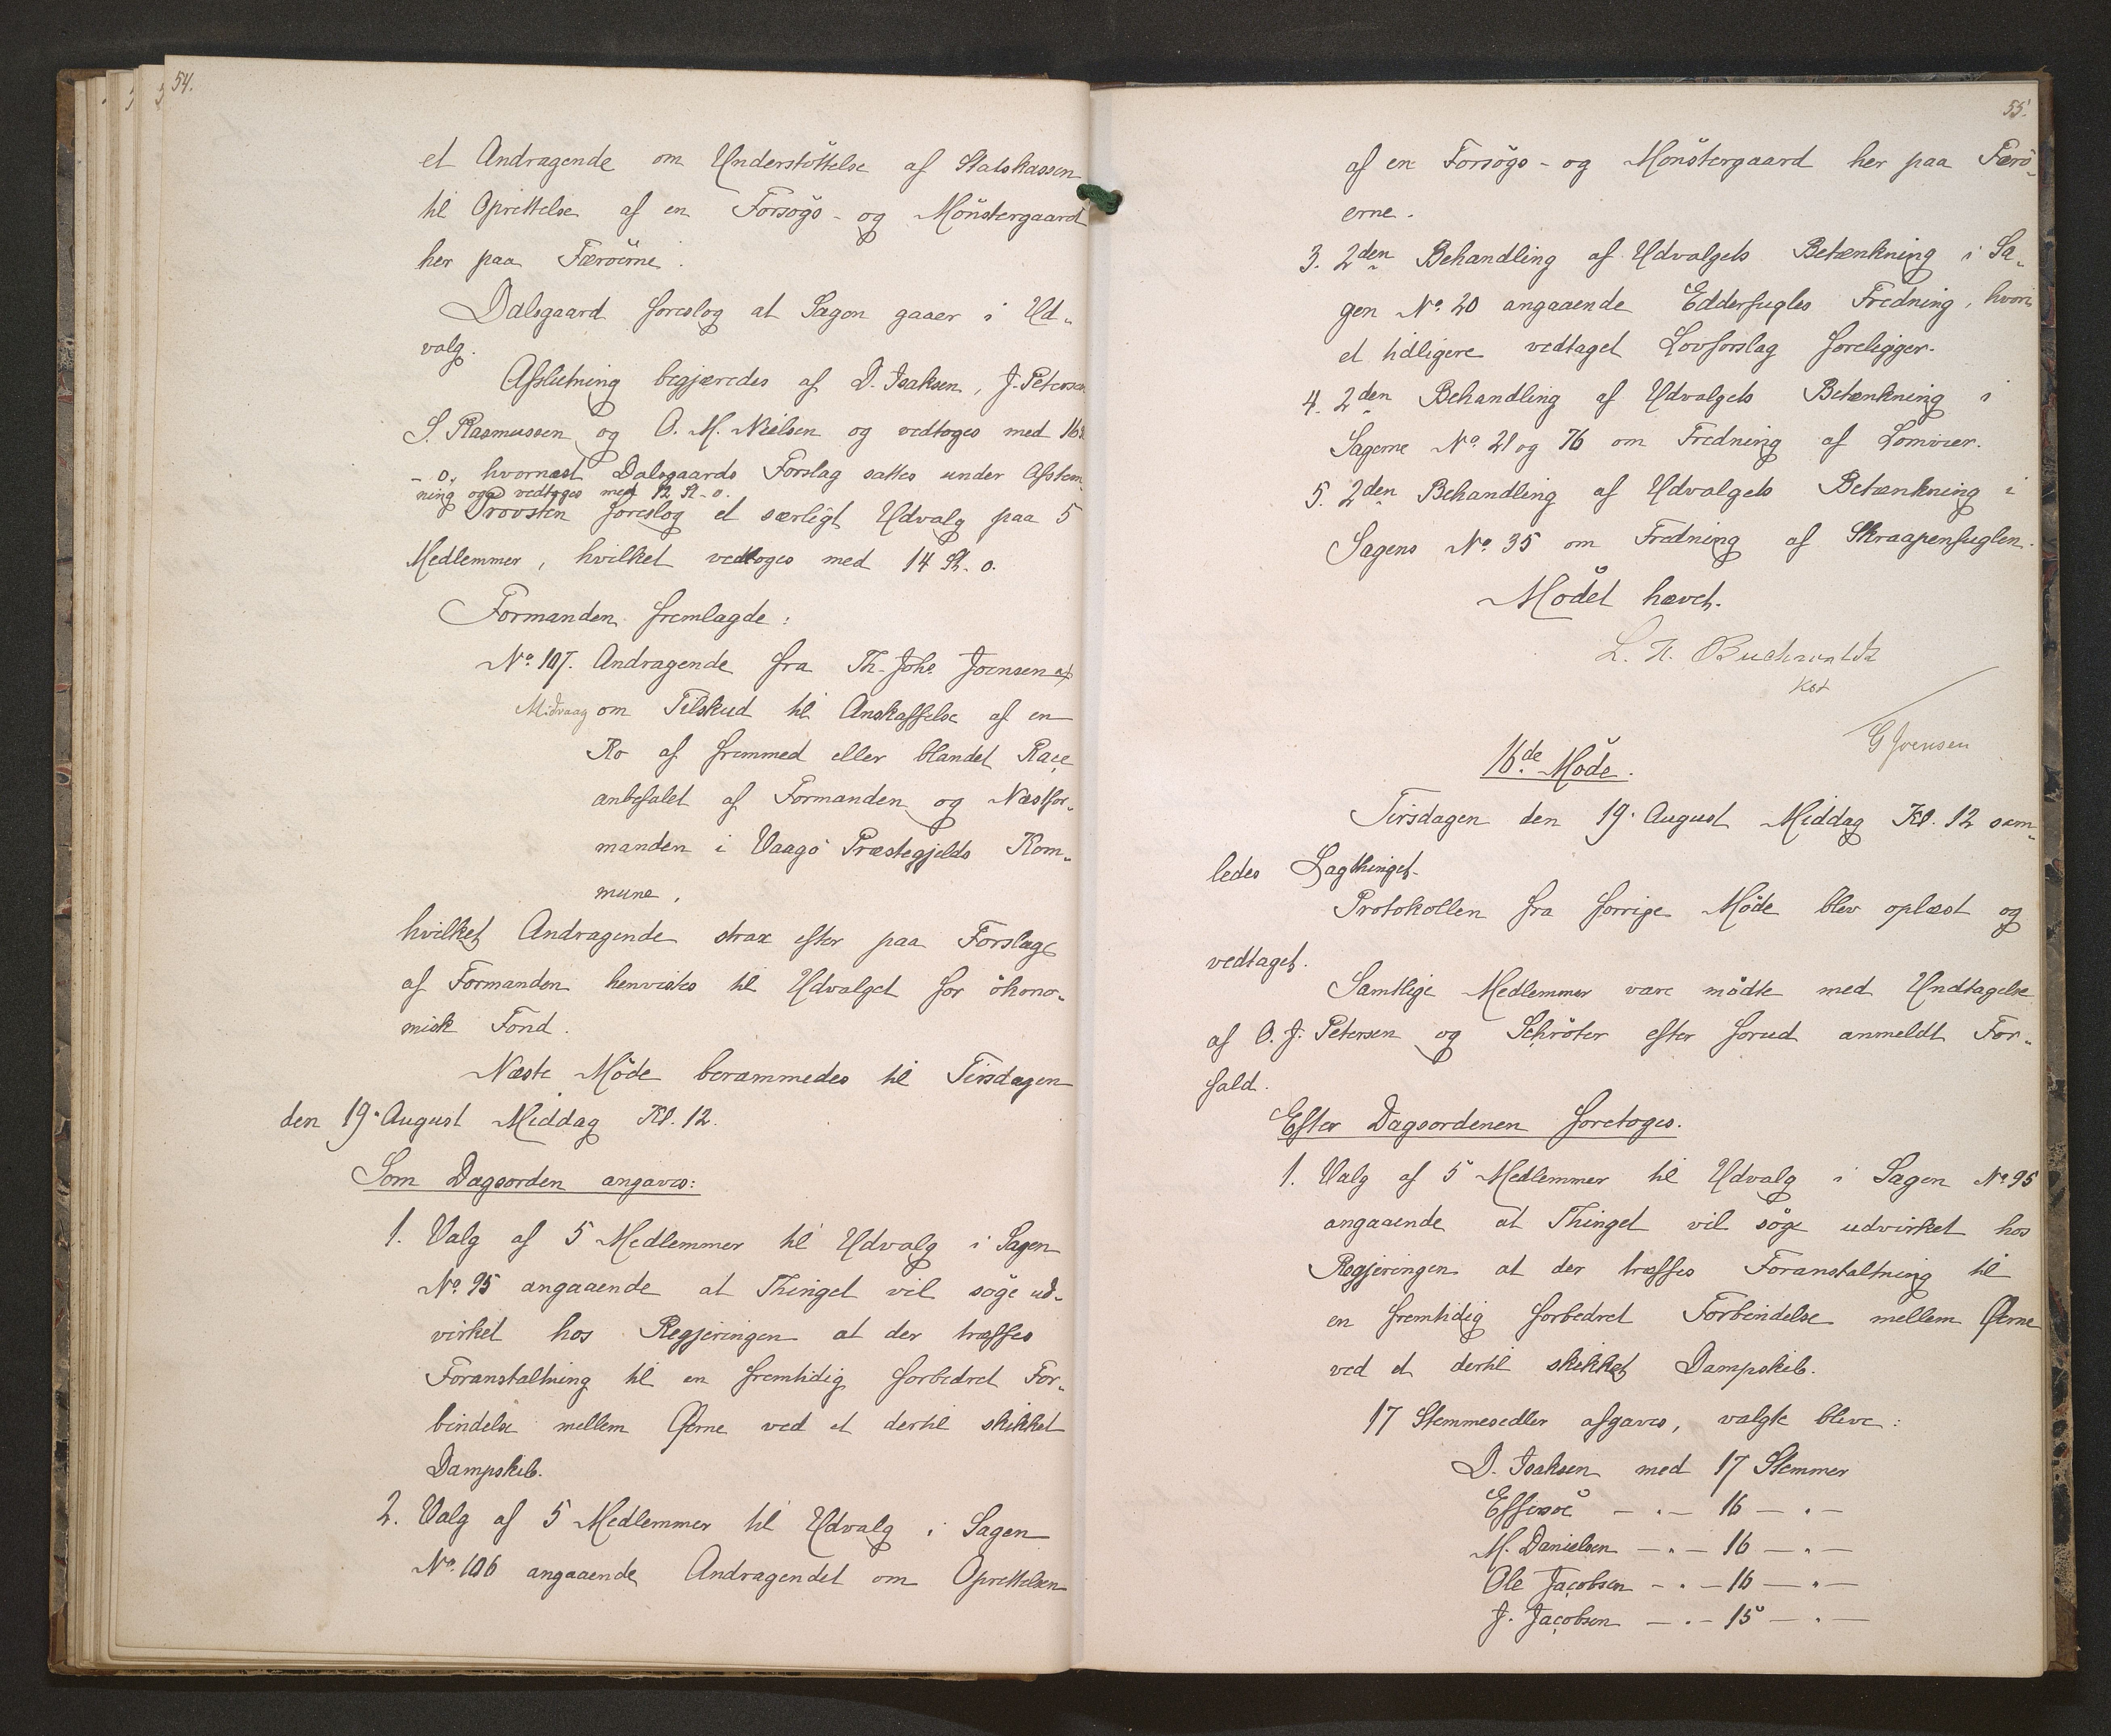 54.
et Andragende om Understöttelse af Statskassen
til Oprettelse af en Forsögs- og Mönstergaard
her paa Færöerne.
Dalsgaard foreslog at Sagen gaaer i Ud-
valg.
Afslutning begjæredes af D. Isaksen, J. Petersen
S. Rasmussen og O. M. Nielsen og vedtoges med 16 St
- 0, hvornæst Dalsgaards Forslag sattes under Afstem-
ning og vedtoges med 12 St - 0.
Provsten foreslog et særligt Udvalg paa 5
Medlemmer, hvilket vedtoges med 14 St. 0.
Formanden fremlagde:
No. 107. Andragende fra Th. Johs. Joensen af
Midvaag om Tilskud til Anskaffelse af en
Ko af fremmed eller blandet Race
anbefalet af Formanden og Næstfor-
manden i Vaagö Præstegjelds Kom-
mune,
hvilket Andragende strax efter paa Forslag
af Formanden henvistes til Udvalget for ökono-
misk Fond.
Næste Möde berammedes til Tirsdagen
den 19. August Middag Kl. 12.
Som Dagsorden angaves:
1. Valg af 5 Medlemmer til Udvalg i Sagen
No. 95 angaaende at Thinget vil söge ud-
virket hos Regjeringen at der træffes
Foranstaltning til en fremtidig forbedret For-
bindelse mellem Öerne ved et dertil skikket
Dampskib.
2. Valg af 5 Medlemmer til Udvalg i Sagen
No. 106 angaaende Andragendet om Oprettelsen
55.
af en Forsögs- og Mönstergaard her paa Færö-
erne.
3. 2den Behandling af Udvalgets Betænkning i Sa-
gen No. 20 angaaende Edderfugles Fredning, hvori
et tidligere vedtaget Lovforslag foreligger.
4. 2den Behandling af Udvalgets Betænkning i
Sagerne No. 21 og 76 om Fredning af Lomvier.
5. 2den Behandling af Udvalgets Betænkning i
Sagens No. 35 om Fredning af Skraapenfuglen.
Mödet hævet.
L. H. Buchwaldt
Kst
G Joensen
16de Möde.
Tirsdagen den 19. August Middag Kl. 12 sam-
ledes Lagthinget.
Protokollen fra forrige Möde blev oplæst og
vedtaget.
Samtlige Medlemmer vare mödte med Undtagelse
af O. J. Petersen og Schröter efter forud anmeldt For-
fald.
Efter Dagsordenen foretoges.
1. Valg af 5 Medlemmer til Udvalg i Sagen No. 95
angaaende at Thinget vil söge udvirket hos
Regjeringen at der træffes Foranstaltning til
en fremtidig forbedret Forbindelse mellem Öerne
ved et dertil skikket Dampskib.
17 Stemmesedler afgaves, valgte bleve:
D. Isaksen med 17 Stemmer
Effersöe - " - 16 - " -
M. Danielsen - " - 16 - " -
Ole Jacobsen - " - 16 - " -
J. Jacobsen - " - 15 - " -